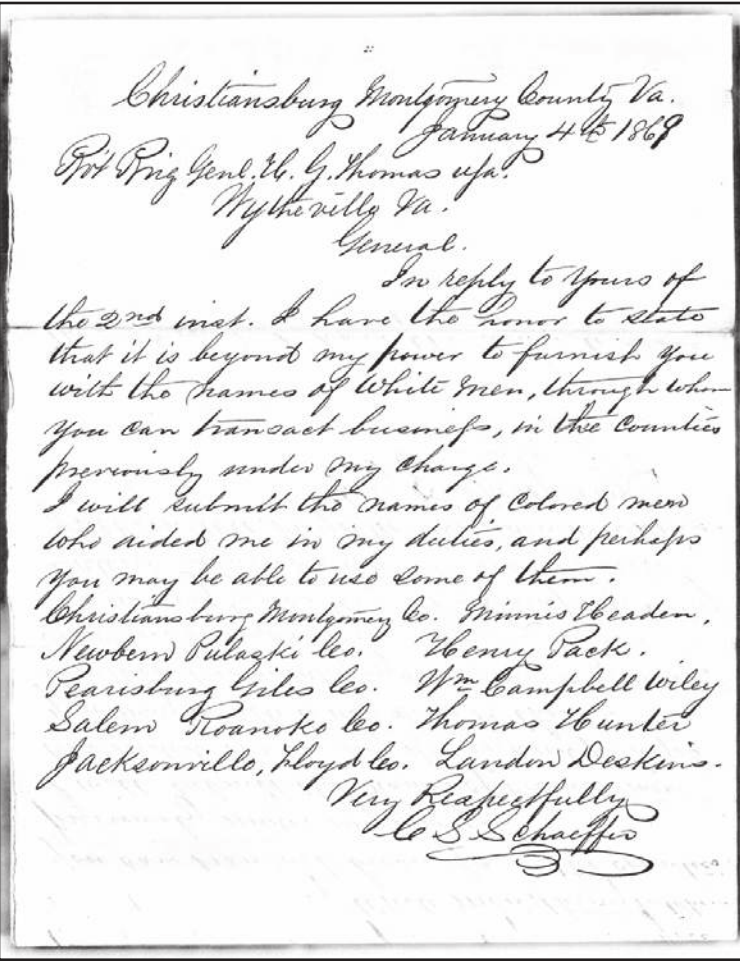 Christiansburg Montgomery County Va.
January 4th 1869
Bvt Brig Genl. H. G. Thomas usa.
Wytheville Va.
General.
In reply to yours of
the 2nd inst. I have the honor to state
that it is beyond my power to furnish you
with the names of White Men, through whom
you can transact business, in the Counties
previously under my charge.
I will submit the names of Colored men
who aided me in my duties, and perhaps
you may be able to use some of them.
Christiansburg Montgomery Co. Minnis Headen,
Newbern Pulaski Co. Henry Pack.
Pearisburg Giles Co. Wm Campbell Wiley
Salem Roanoke Co. Thomas Hunter
Jacksonville, Floyd Co. Landon Deskins.
Very Respectfully
C S Schaeffer